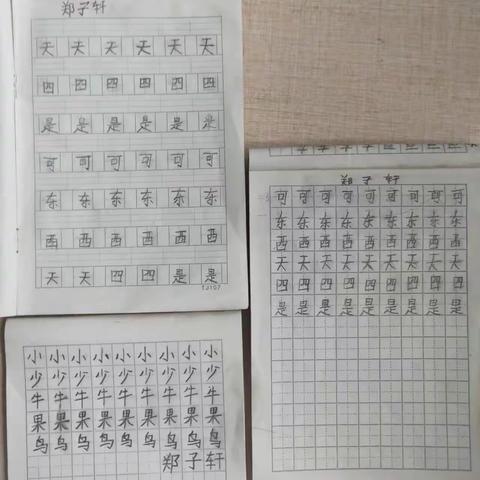 郑子轩
天天天天天天
四四四四四四
是是是是是是
可可可可可可
东东东东东东
西西西西西西
天天四四是是
TJ107
郑子轩
可可可可可可可可可
东东东东东东东东东
西西西西西西西西西
天天天天天天天天天
四四四四四四四四四
是是是是是是是是是
小小小小小小小小
少少少少少少少少
牛牛牛牛牛牛牛牛
果果果果果果果果
鸟鸟鸟鸟鸟鸟鸟鸟
郑子轩